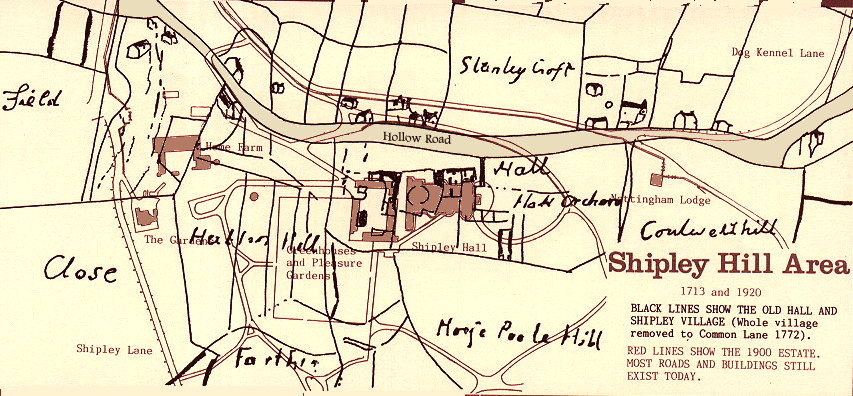 Dog Kennel Lane
Stanley Croft
Field
Hollow Road
Home Farm
Hall
Hall Orchard
Nottingham Lodge
The Gardens
Hill
Greenhouses
and Pleasure
Gardens
Shipley Hall
Close
Shipley Lane
Shipley Hill Area
1713 and 1920
BLACK LINES SHOW THE OLD HALL AND
SHIPLEY VILLAGE (Whole village
removed to Common Lane 1772).
RED LINES SHOW THE 1900 ESTATE.
MOST ROADS AND BUILDINGS STILL
EXIST TODAY.
Poole Hill